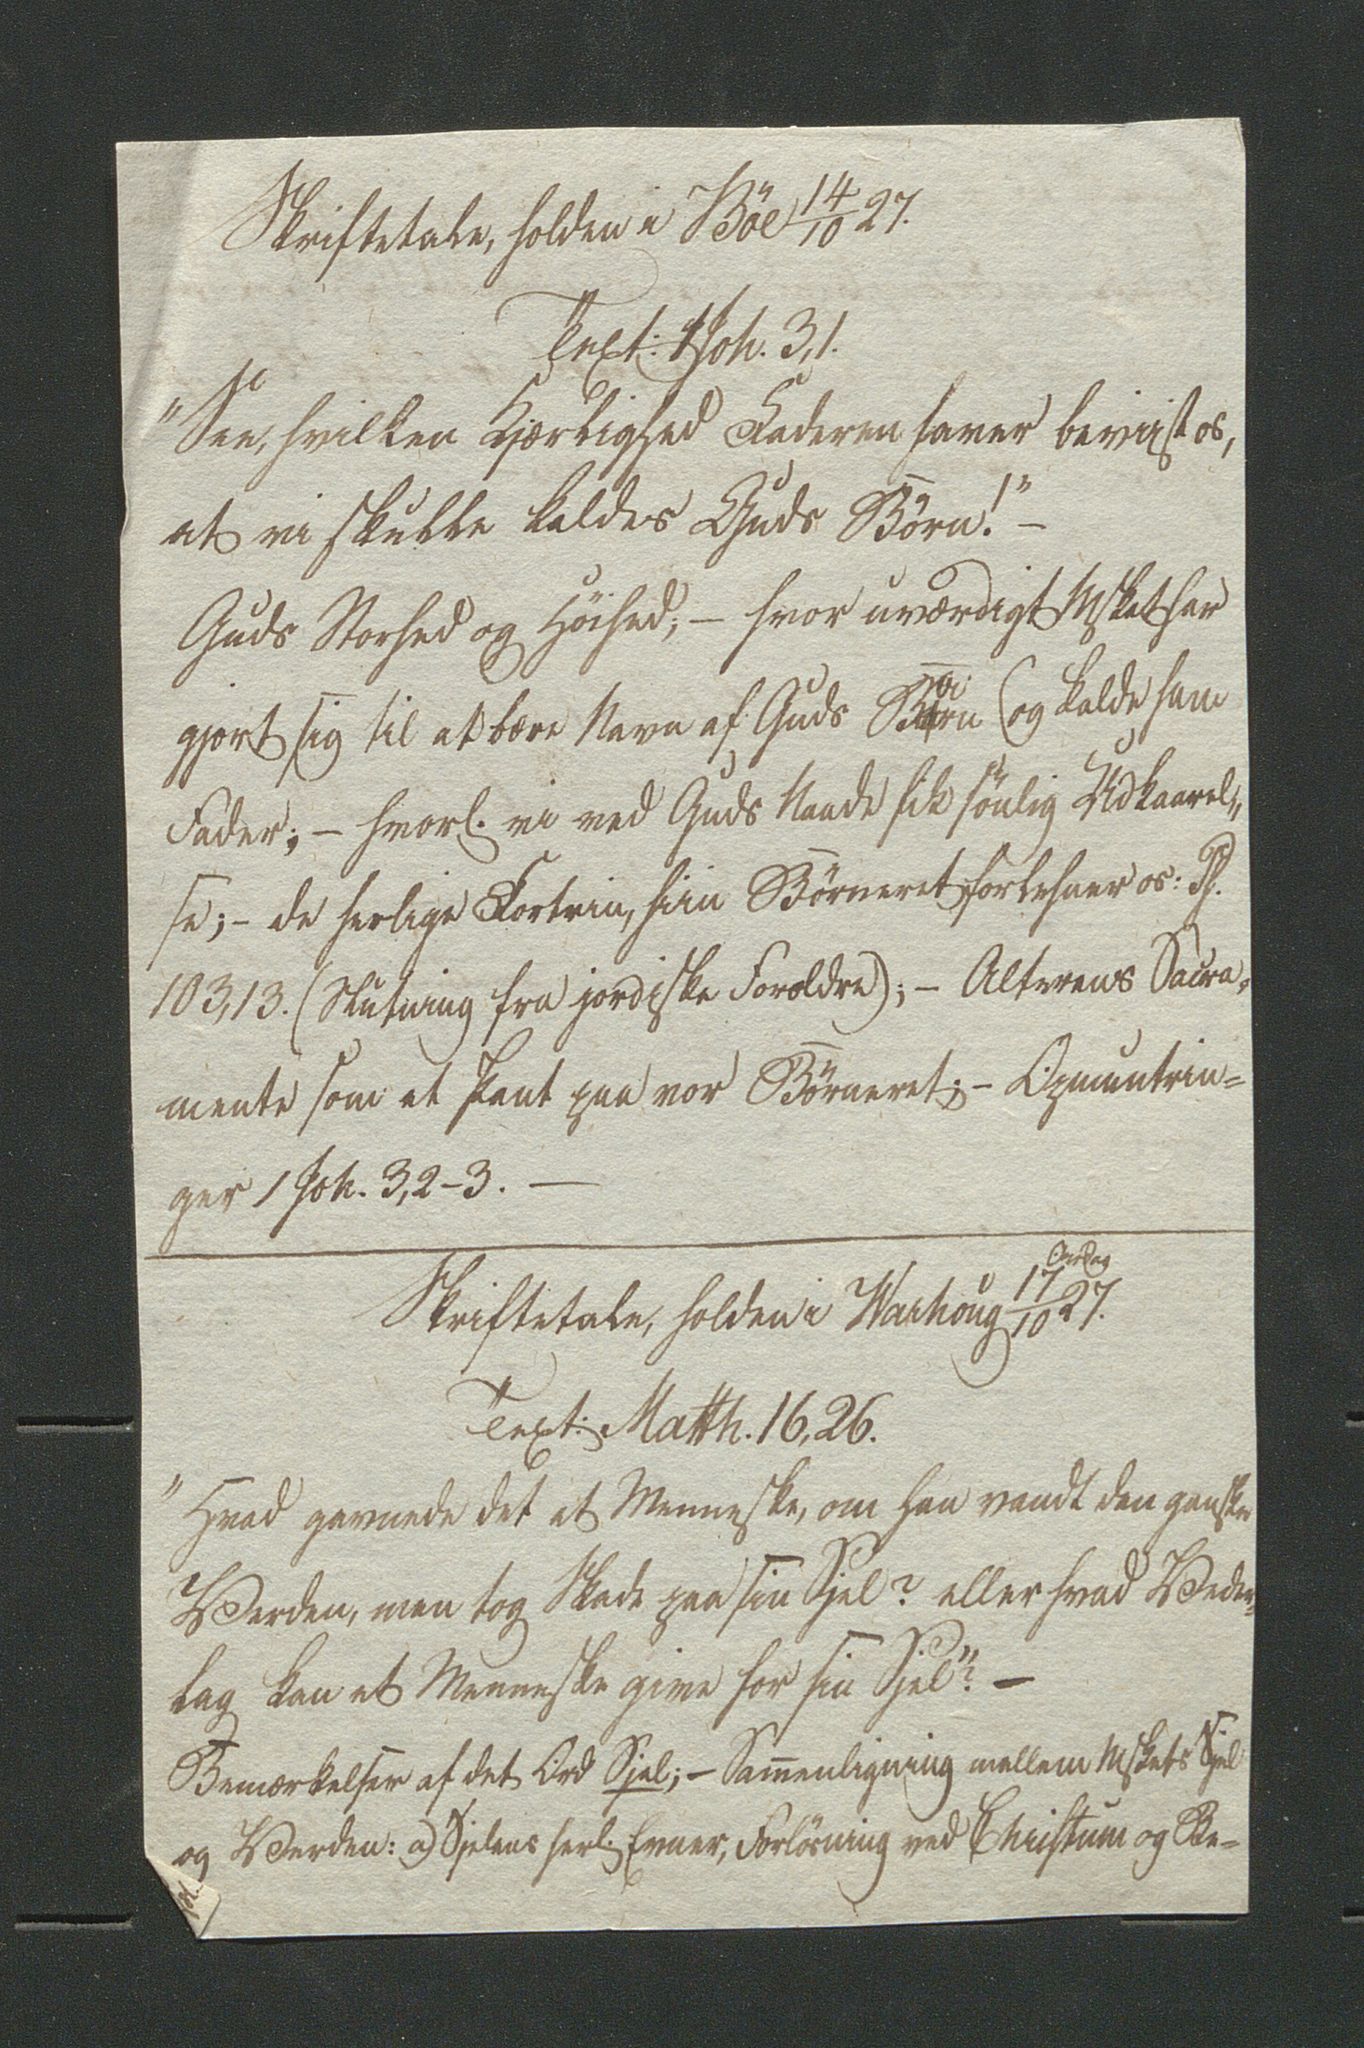 Skriftetale, holden i Böe 14/10 27.
Text: 1 Joh. 3,1.
"See, hvilken Kjærlighed Faderen haver beviist os,
at vi skulle kaldes Guds Børn!" –
Guds Storhed og Höihed; – hvor uværdigt Msket har
gjort sig til at bære Navn af Guds Barn (og kalde ham
Fader; – hvorl. vi ved Guds Naade fik sönlig Udkaarel„
se; – de herlige Fortrin, hiin Børneret forlehner os: Ps.
103,13. (Slutning fra jordiske Forældre); – Alterens Sacra„
mente som et Pant paa vor Børneret; – Opmuntrin=
ger 1 Joh. 3,2–3. –
Onsdag
Skriftetale, holden i Walhoug 17/10 27.
Text: Matth. 16,26.
"Hvad gavnede det et Menneske, om han vandt den ganske
Verden, men tog Skade paa sin Sjel? eller hvad Veder„
lag kan et Menneske give for sin Sjel"? –
Bemærkelser af det Ord Sjel; – Sam̄enligning mellem Mskets Sjel
og Verden: a) Sjelens herl. Evner, Forlösning ved Christum og Be–